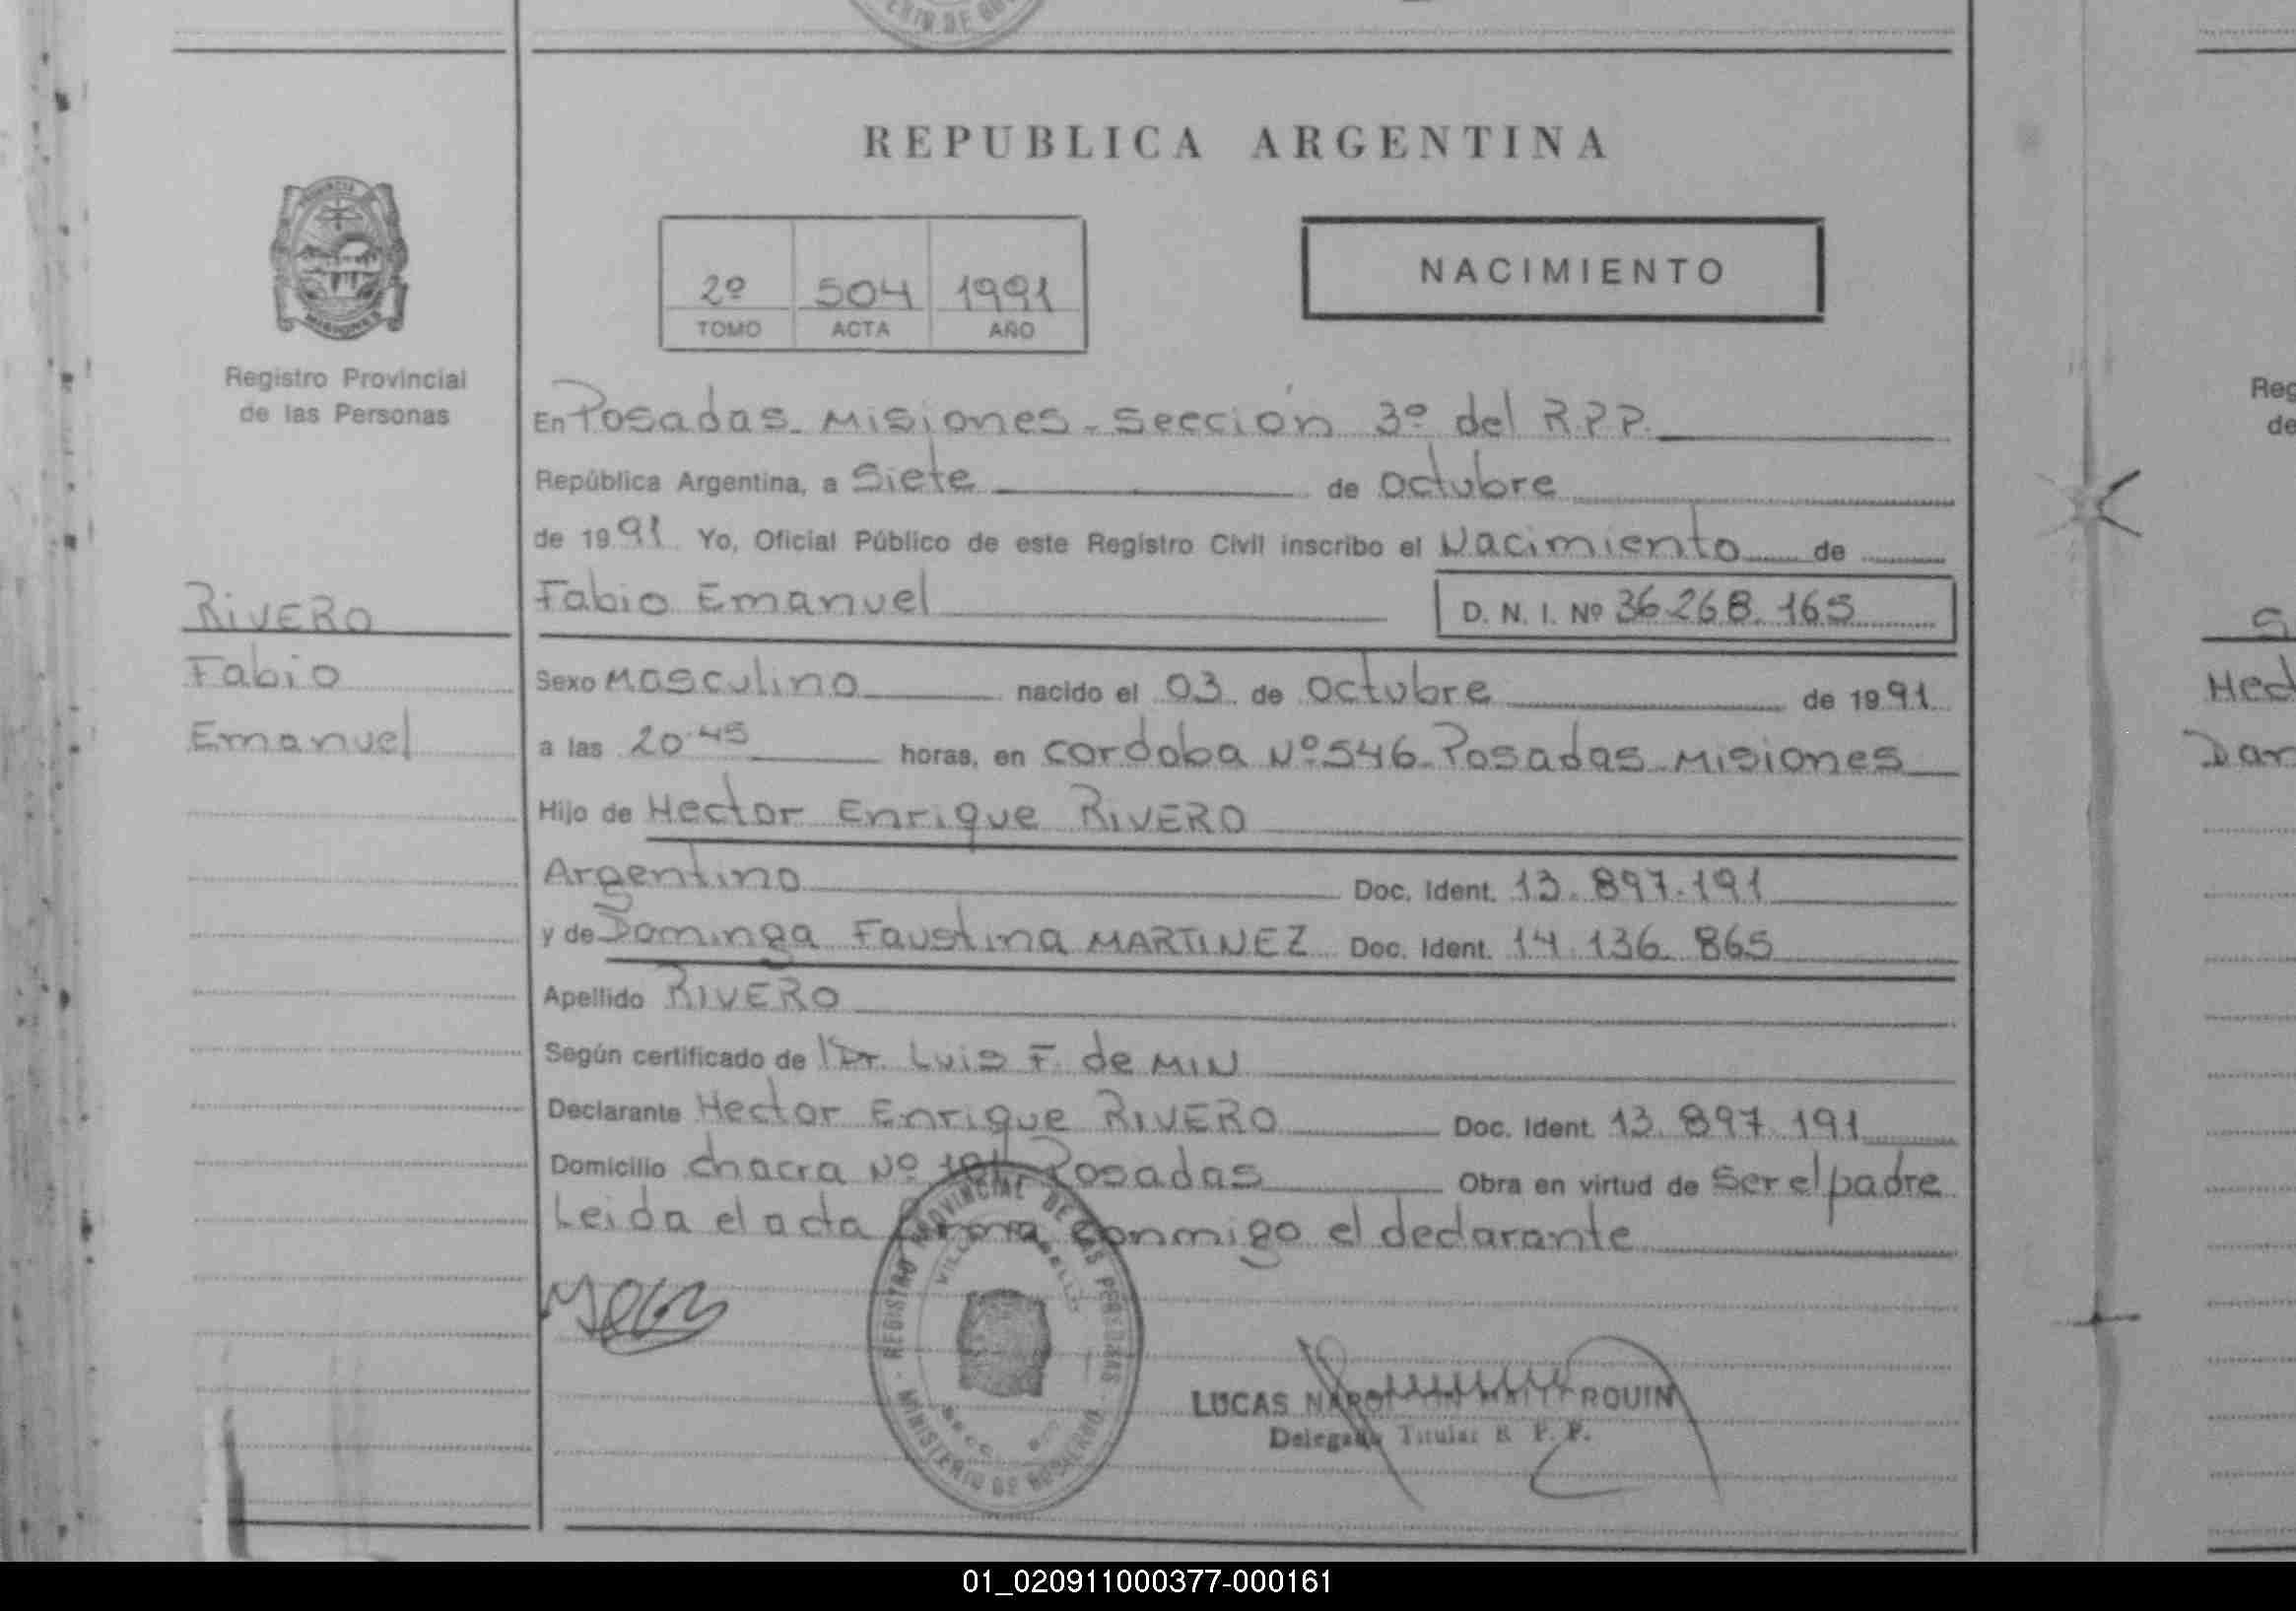 REPUBLICA ARGENTINA
PROVINCIA
MISIONES
2º 504 1991
TOMO ACTA AÑO
NACIMIENTO
Registro Provincial
de las Personas
En Posadas - Misiones - Sección 3º del R.P.P.
República Argentina, a Siete de Octubre
de 1991 Yo, Oficial Público de este Registro Civil inscribo el Nacimiento de
Fabio Emanuel D. N. I. Nº 36.268.165
RIVERO
Fabio
Emanuel
Sexo Masculino nacido el 03 de Octubre de 1991
a las 20 45 horas, en Cordoba Nº 546 - Posadas - Misiones
Hijo de Hector Enrique RIVERO
Argentino Doc. Ident. 13.897.191
y de Dominga Faustina MARTINEZ Doc. Ident. 14.136.865
Apellido RIVERO
Según certificado de Dr. Luis F. de MIN
Declarante Hector Enrique RIVERO Doc. Ident. 13.897.191
Domicilio Chacra Nº Posadas Obra en virtud de Ser el padre
Leida el acta firma conmigo el declarante
REGISTRO PROVINCIAL DE LAS PERSONAS
MINISTERIO DE GOBIERNO
LUCAS
Delegado Titular R. P. P.
Reg
de
Hec
Dar
01_020911000377-000161